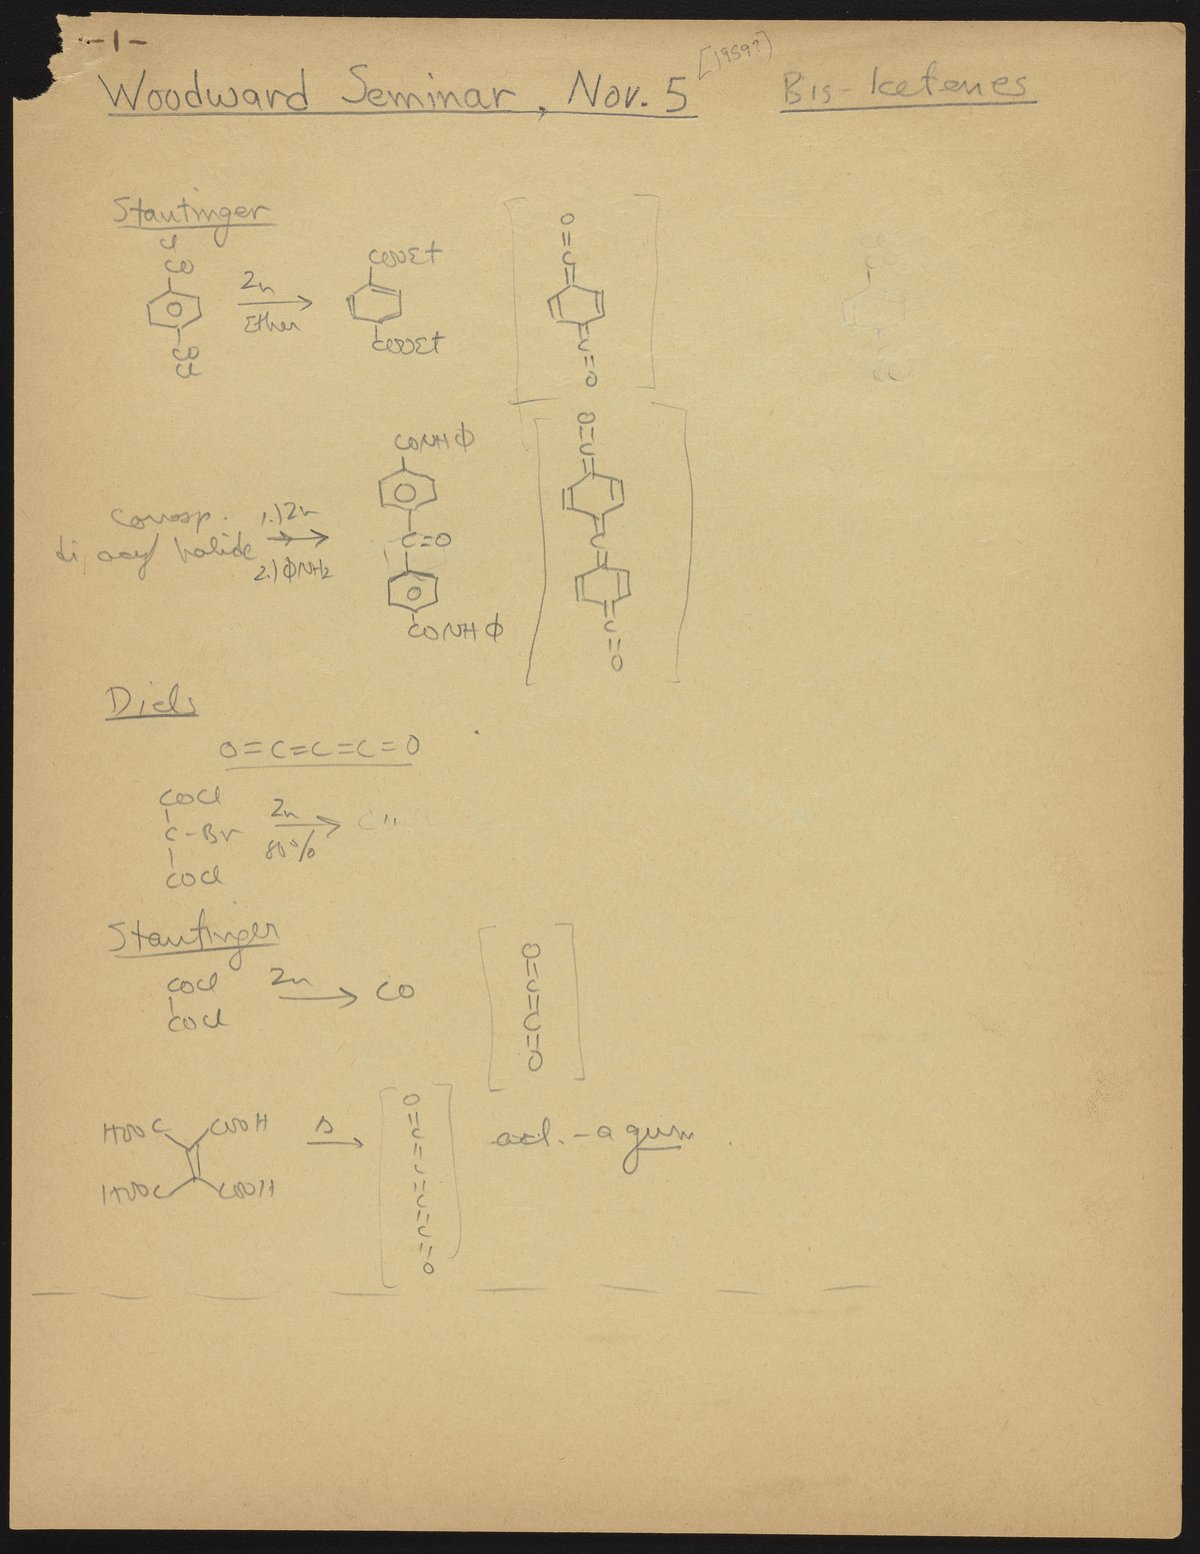 -1-
[1959?]
Woodward Seminar, Nov. 5 Bis-ketenes
Stautinger
Cl
CO
COCl
Zn
Ether
COOEt
COOEt
O=C= =C=O
CONHΦ
C=O
CONHΦ
corresp.
di acyl halide
1.) Zn
2.) ΦNH2
O=C= =C= =C=O
Diels
O=C=C=C=O
COCl
C-Br
COCl
Zn
80%
C
Stautinger
COCl
COCl
Zn
CO
O=C=C=O
HOOC COOH
HOOC COOH
Δ
O=C=C=C=C=O
acl. - a gum